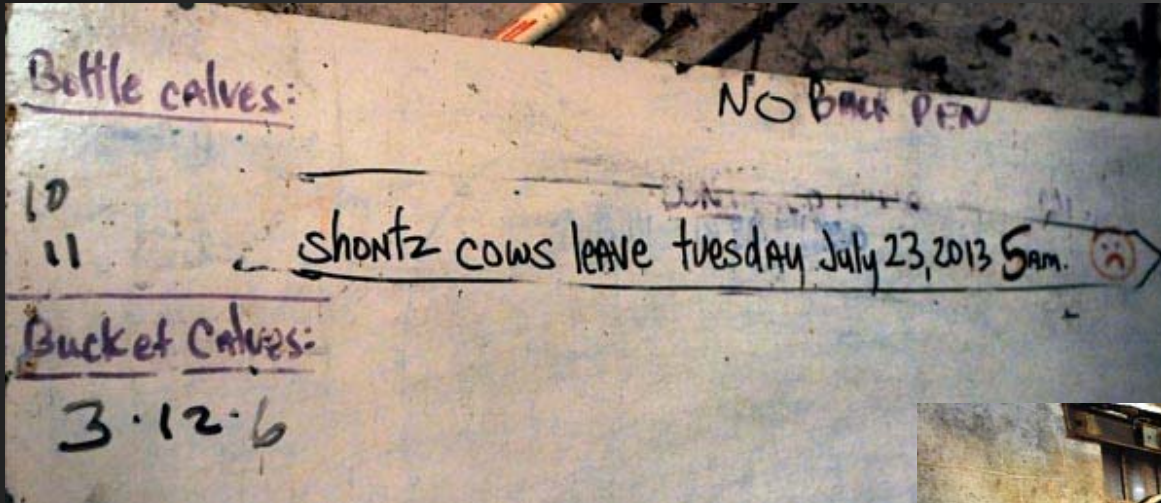 Bottle calves:
NO BACK PEN
10
11
shontz cows leave tuesday July 23, 2013 5am.
Bucket Calves:
3 · 12 · 6